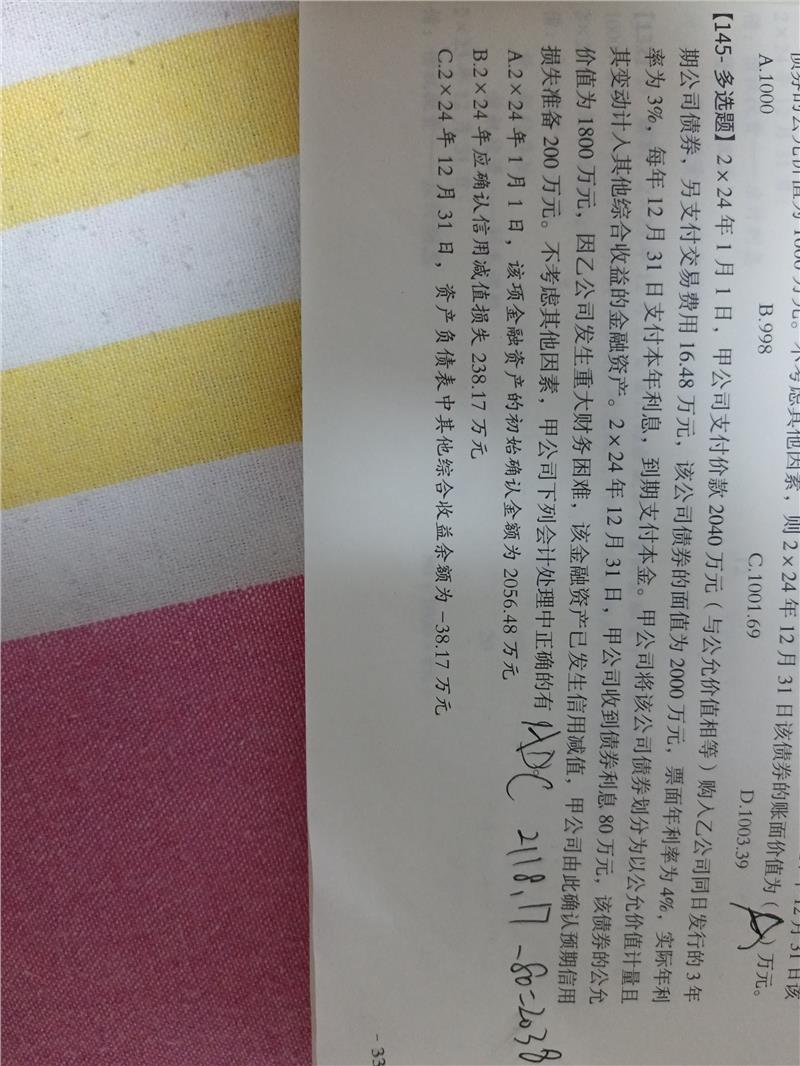 债券的公允价值为 1000 万元。不考虑其他因素，则 2×24 年 12 月 31 日该债券的账面价值为（A）万元。
A.1000 B.998 C.1001.69 D.1003.39
【145-多选题】2×24 年 1 月 1 日，甲公司支付价款 2040 万元（与公允价值相等）购入乙公司同日发行的 3 年
期公司债券，另支付交易费用 16.48 万元，该公司债券的面值为 2000 万元，票面年利率为 4%，实际年利
率为 3%，每年 12 月 31 日支付本年利息，到期支付本金。甲公司将该公司债券划分为以公允价值计量且
其变动计入其他综合收益的金融资产。2×24 年 12 月 31 日，甲公司收到债券利息 80 万元，该债券的公允
价值为 1800 万元，因乙公司发生重大财务困难，该金融资产已发生信用减值，甲公司由此确认预期信用
损失准备 200 万元。不考虑其他因素，甲公司下列会计处理中正确的有
A.2×24 年 1 月 1 日，该项金融资产的初始确认金额为 2056.48 万元
B.2×24 年应确认信用减值损失 238.17 万元
C.2×24 年 12 月 31 日，资产负债表中其他综合收益余额为 -38.17 万元
2118.17 -80=2038
- 33